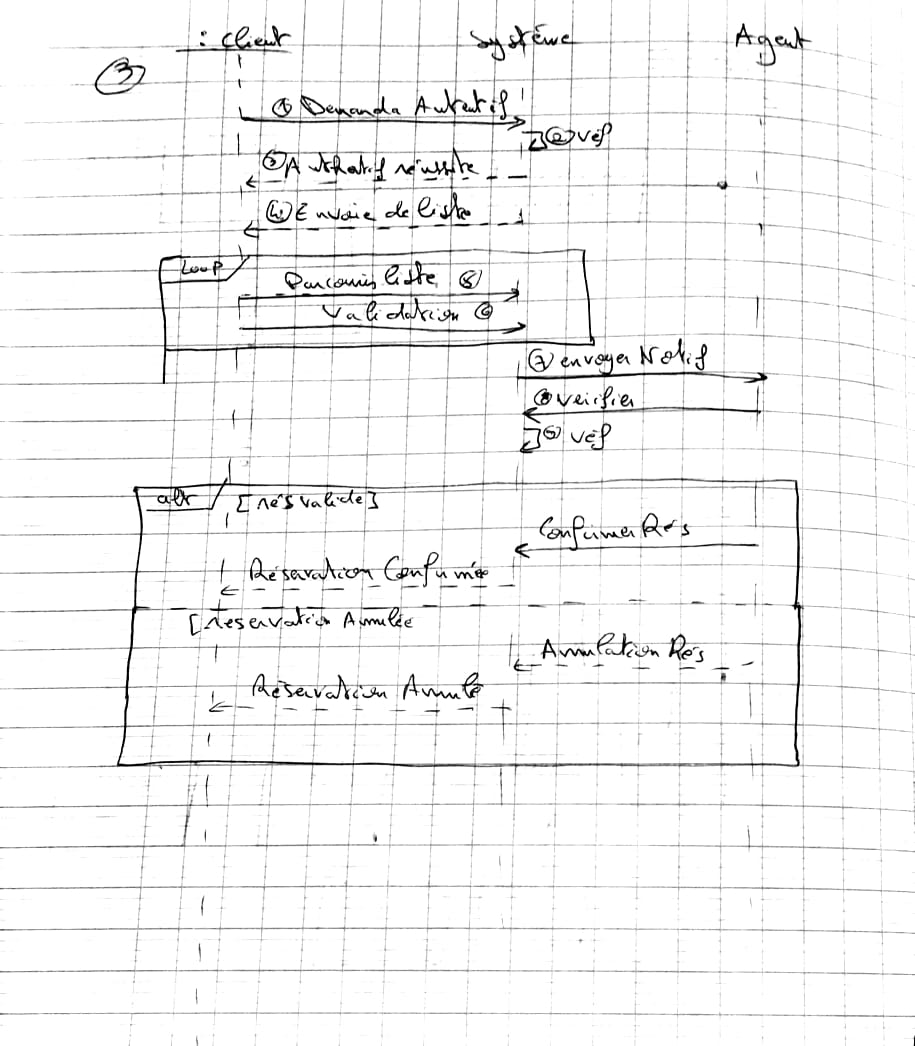 : Client Système Agent
③
① Demande Autentif
② vef
③ Authentif réussite
④ Envoie de liste
Loop
Parcours liste ⑤
Validation ⑥
⑦ envoyer Notif
⑧ verifier
⑨ vef
alt [rés valide]
Confirmer Rés
Réservation Confirmée
[reservation Annulée
Annulation Rés
Réservation Annulé